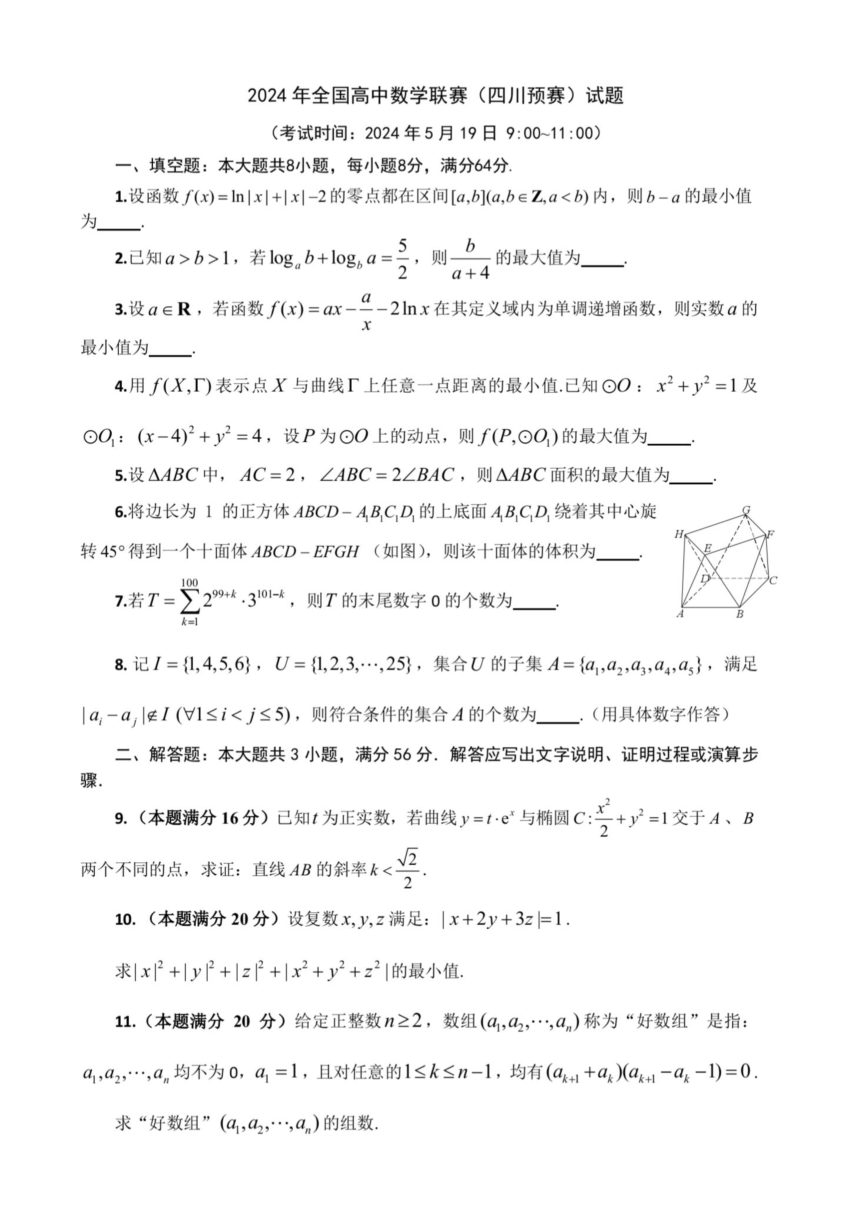 2024 年全国高中数学联赛（四川预赛）试题
（考试时间：2024 年 5 月 19 日 9:00~11:00）
一、填空题：本大题共8小题，每小题8分，满分64分.
1.设函数 f(x) = ln|x|+|x|−2 的零点都在区间[a,b](a,b∈Z,a<b) 内，则 b−a 的最小值
为_____.
2.已知 a>b>1，若 log_a b+log_b a = 5/2，则 b/(a+4) 的最大值为_____.
3.设 a∈R，若函数 f(x) = ax − a/x − 2ln x 在其定义域内为单调递增函数，则实数 a 的
最小值为_____.
4.用 f(X,Γ) 表示点 X 与曲线 Γ 上任意一点距离的最小值.已知 ⊙O：x² + y² = 1 及
⊙O₁：(x−4)² + y² = 4，设 P 为 ⊙O 上的动点，则 f(P,⊙O₁) 的最大值为_____.
5.设 △ABC 中，AC = 2，∠ABC = 2∠BAC，则 △ABC 面积的最大值为_____.
6.将边长为 1 的正方体 ABCD − A₁B₁C₁D₁ 的上底面 A₁B₁C₁D₁ 绕着其中心旋
转 45° 得到一个十面体 ABCD − EFGH （如图），则该十面体的体积为_____.
G
H
E
F
D
C
A
B
7.若 T = ∑_{k=1}^{100} 2^{99+k} · 3^{101−k}，则 T 的末尾数字 0 的个数为_____.
8. 记 I = {1,4,5,6}，U = {1,2,3,⋯,25}，集合 U 的子集 A = {a₁,a₂,a₃,a₄,a₅}，满足
|a_i − a_j|∉ I (∀1≤i<j≤5)，则符合条件的集合 A 的个数为_____.（用具体数字作答）
二、解答题：本大题共 3 小题，满分 56 分．解答应写出文字说明、证明过程或演算步
骤．
9. （本题满分 16 分）已知 t 为正实数，若曲线 y = t·e^x 与椭圆 C: x²/2 + y² = 1 交于 A 、 B
两个不同的点，求证：直线 AB 的斜率 k < √2/2.
10. （本题满分 20 分）设复数 x, y, z 满足：| x + 2y + 3z |= 1.
求| x |² + | y |² + | z |² + | x² + y² + z² |的最小值.
11.（本题满分 20 分）给定正整数 n≥2，数组 (a₁,a₂,⋯,a_n) 称为“好数组”是指：
a₁,a₂,⋯,a_n 均不为 0，a₁ = 1，且对任意的 1≤k≤n−1，均有 (a_{k+1} + a_k)(a_{k+1} − a_k − 1) = 0.
求“好数组”(a₁,a₂,⋯,a_n) 的组数.